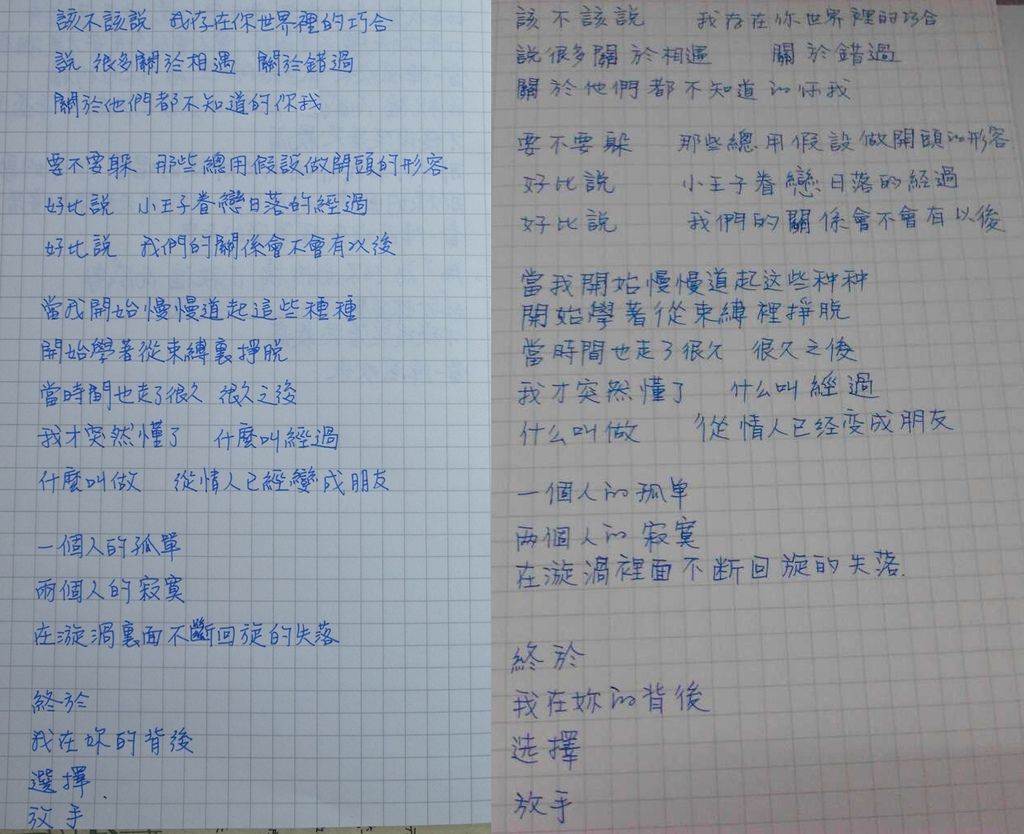 該不該說 我存在你世界裡的巧合
說 很多關於相遇 關於錯過
關於他們都不知道的你我
要不要躲 那些總用假設做開頭的形容
好比說 小王子眷戀日落的經過
好比說 我們的關係會不會有以後
當我開始慢慢道起這些種種
開始學著從束縛裏掙脫
當時間也走了很久 很久之後
我才突然懂了 什麼叫經過
什麼叫做 從情人已經變成朋友
一個人的孤單
兩個人的寂寞
在漩渦裏面不斷回旋的失落
終於
我在妳的背後
選擇
放手
該不該說 我存在你世界裡的巧合
說很多關於相遇 關於錯過
關於他們都不知道的你我
要不要躲 那些總用假設做開頭的形容
好比說 小王子眷戀日落的經過
好比說 我們的關係會不會有以後
當我開始慢慢道起这些种种
開始學著從束縛裡掙脫
當時間也走了很久 很久之後
我才突然懂了 什么叫經過
什么叫做 從情人已经变成朋友
一個人的孤单
兩個人的寂寞
在漩渦裡面不斷回旋的失落.
終於
我在妳的背後
选擇
放手